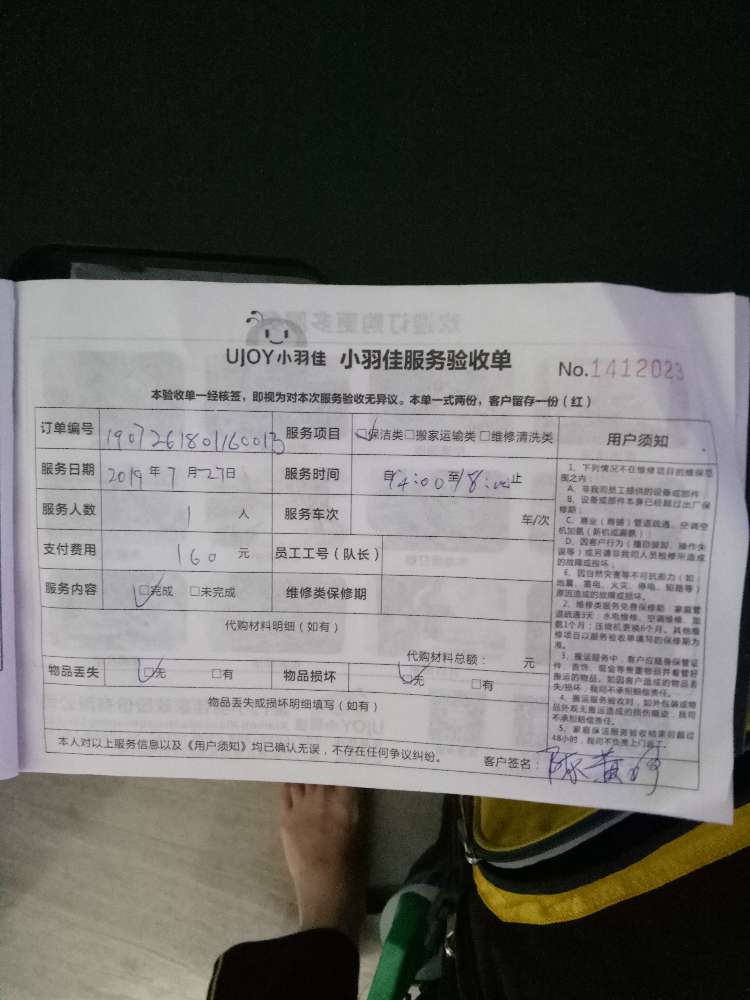 UJOY小羽佳 小羽佳服务验收单 No.1412023
本验收单一经核签，即视为对本次服务验收无异议。本单一式两份，客户留存一份（红）
订单编号 1907261801160013 服务项目 □保洁类□搬家运输类□维修清洗类
服务日期 2019年7月27日 服务时间 自14:00至18:00止
服务人数 1 人 服务车次 车/次
支付费用 160 元 员工工号（队长）
服务内容 □完成 □未完成 维修类保修期
代购材料明细（如有）
代购材料总额： 元
物品丢失 □无 □有 物品损坏 □无 □有
物品丢失或损坏明细填写（如有）
本人对以上服务信息以及《用户须知》均已确认无误，不存在任何争议纠纷。
客户签名：陈
用户须知
1、下列情况不在维修项目的维保范
围之内：
A、非我司员工提供的设备或部件；
B、设备或部件本身已经超过出厂保
修期；
C、商业（商铺）管道疏通、空调空
机加氨（新机或漏氨）
D、因客户行为（擅自装卸、操作失
误等）或另请非我司人员检修所造成
的故障或损坏；
E、因自然灾害等不可抗影力（如：
地震、雷电、火灾、停电、短路等）
原因造成的故障或损坏。
2、维修类服务免费保修期：家庭管
道疏通3天；水电维修、空调维修、加
氨1个月；压缩机更换6个月。其他维
修项目以服务验收单填写的保修期为
准。
3、搬运服务中，客户应随身保管证
件、首饰、现金等贵重物品并看管好
搬运的物品。如因客户造成的物品丢
失/损坏，我司不承担赔偿责任。
4、搬运服务验收时，如外包装或物
品外观无搬运造成的损伤痕迹，我司
不承担赔偿责任。
5、家庭保洁服务验收结束后超过
48小时，我司不负责上门返工。